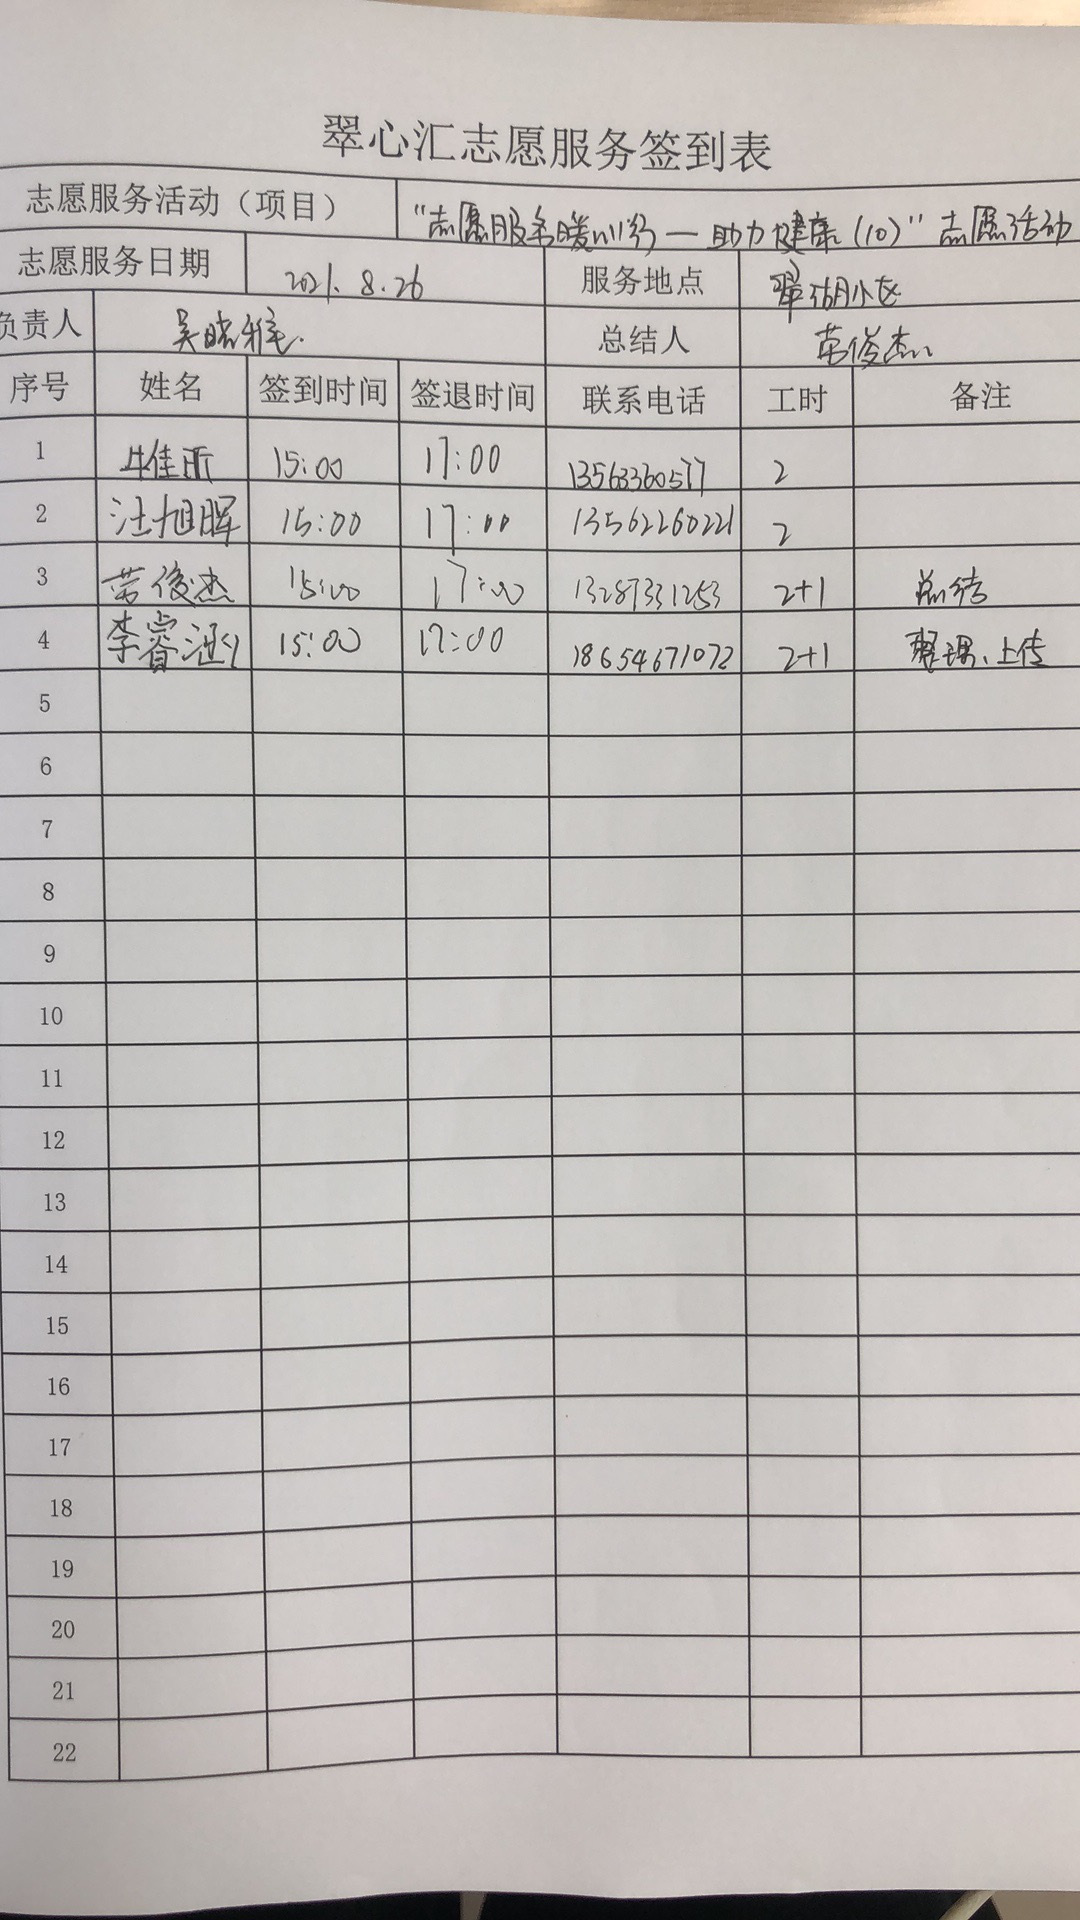 翠心汇志愿服务签到表
志愿服务活动（项目） “志愿服务暖心行—助力健康（10）”志愿活动
志愿服务日期 2021.8.26 服务地点 翠湖小区
负责人 吴晓雅 总结人 荣俊杰
序号 姓名 签到时间 签退时间 联系电话 工时 备注
1 15:00 17:00 13563360577 2
2 汪旭晖 15:00 17:00 13562260221 2
3 荣俊杰 15:00 17:00 13287331253 2+1 总结
4 李睿涵 15:00 17:00 18654671072 2+1 整理、上传
5
6
7
8
9
10
11
12
13
14
15
16
17
18
19
20
21
22